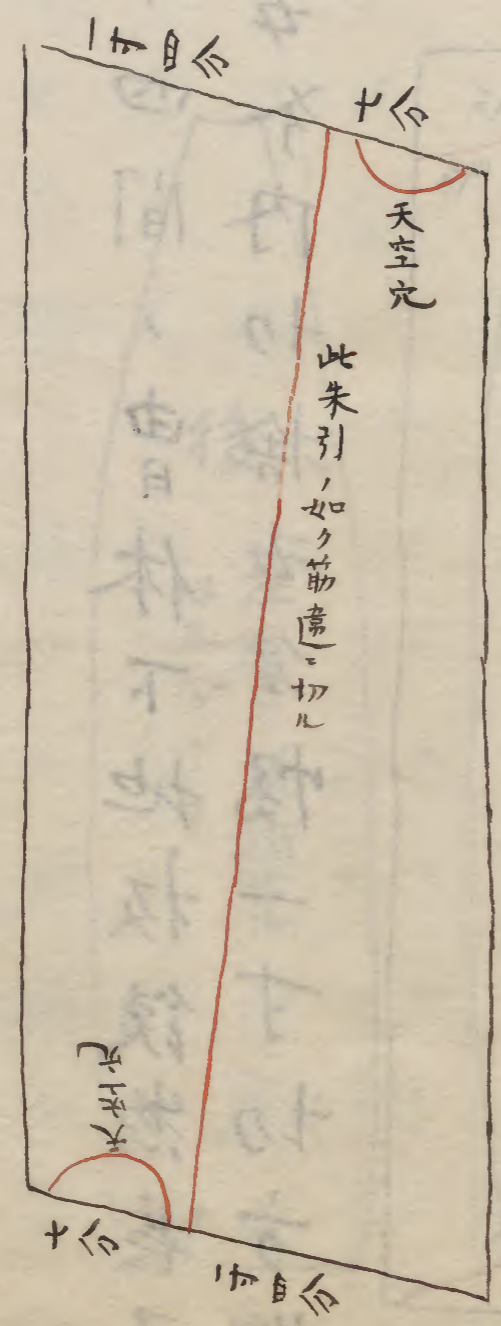 一寸四分
七分
天空穴
此朱引ノ如ク筋違ニ切ル
天空穴
七分
一寸四分